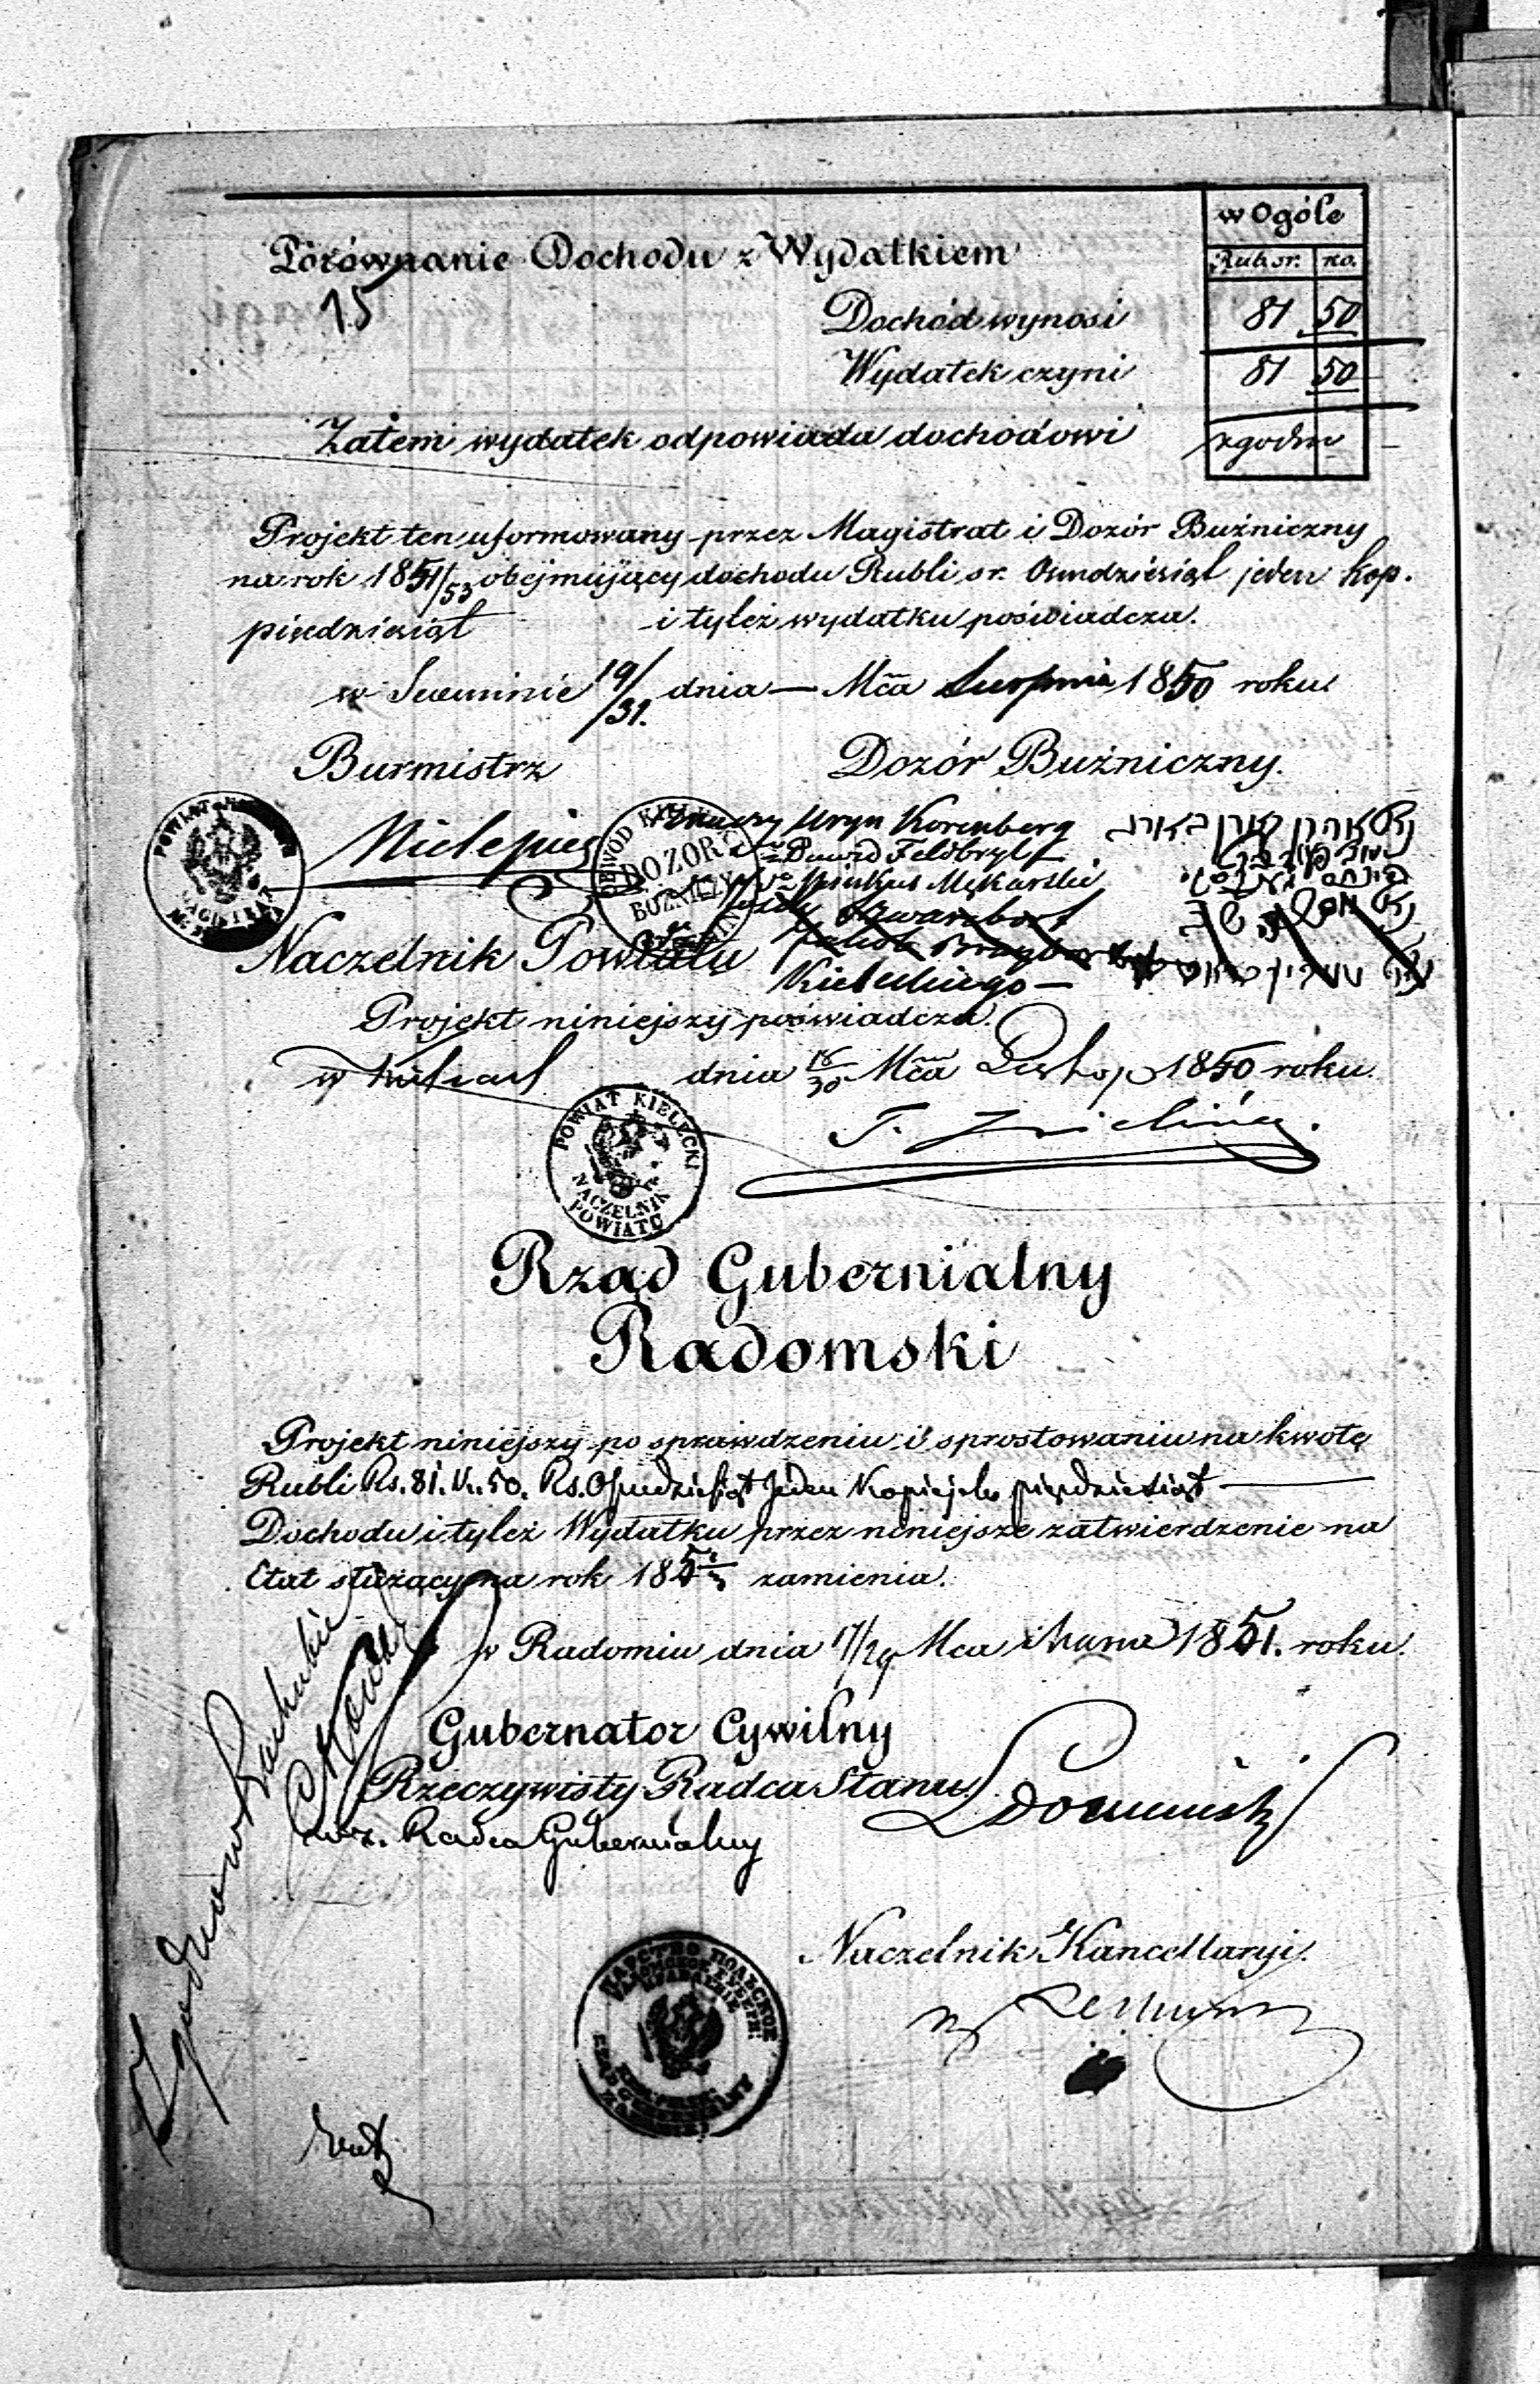 w Ogóle
Porównanie Dochodu z Wydatkiem
Rub. sr. ko.
15
Dochód wynosi 81 50
Wydatek czyni 81 50
Zatem wydatek odpowiada dochodowi zgodnie
Projekt ten uformowany przez Magistrat i Dozór Buźniczny
na rok 1851/53 obejmujący dochodu Rubli sr. Osmdziesiąt jeden kop.
piędziesiąt i tyleż wydatku poświadcza.
w 19/31. dnia — Mca Sierpnia 1850 roku
Burmistrz Dozór Buźniczny.
POWIAT
MAGISTRAT
DOZÓR
BUZNICZY
Uryn Korenberg
Dawid Feldbryl
Pinkus Mękarski
Szwarcbort
Jakob
Naczelnik Powiatu
Kieleckiego —
Projekt niniejszy poświadcza.
w Kielcach dnia 18/30 Mca 1850 roku.
POWIAT KIELECKI
NACZELNIK
POWIATU
Rząd Gubernialny
Radomski
Projekt niniejszy po sprawdzeniu i sprostowaniu na kwotę
Rubli Rs. 81. k. 50. Rs. Osmdziesiąt Jeden Kopiejek pięćdziesiąt
Dochodu i tyleż Wydatku przez niniejsze zatwierdzenie na
Etat służący na rok 185 1/3 zamienia.
w Radomiu dnia 17/29 Mca Marca 1851. roku.
Gubernator Cywilny
Rzeczywisty Radca Stanu
wz. Radca Gubernialny
Naczelnik Kancellaryi.
ЦАРСТВО ПОЛЬСКОЕ